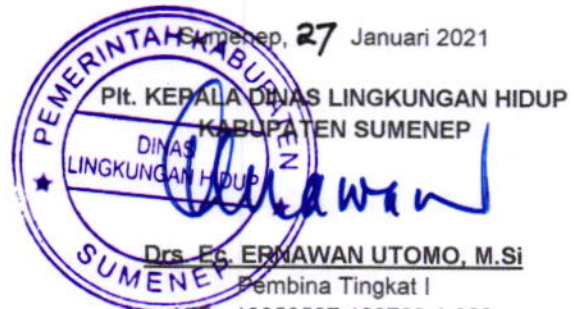 Sumenep, 27 Januari 2021
Plt. KEPALA DINAS LINGKUNGAN HIDUP
KABUPATEN SUMENEP
PEMERINTAH KABUPATEN
DINAS
LINGKUNGAN HIDUP
SUMENEP
Drs. Ec. ERNAWAN UTOMO, M.Si
Pembina Tingkat I